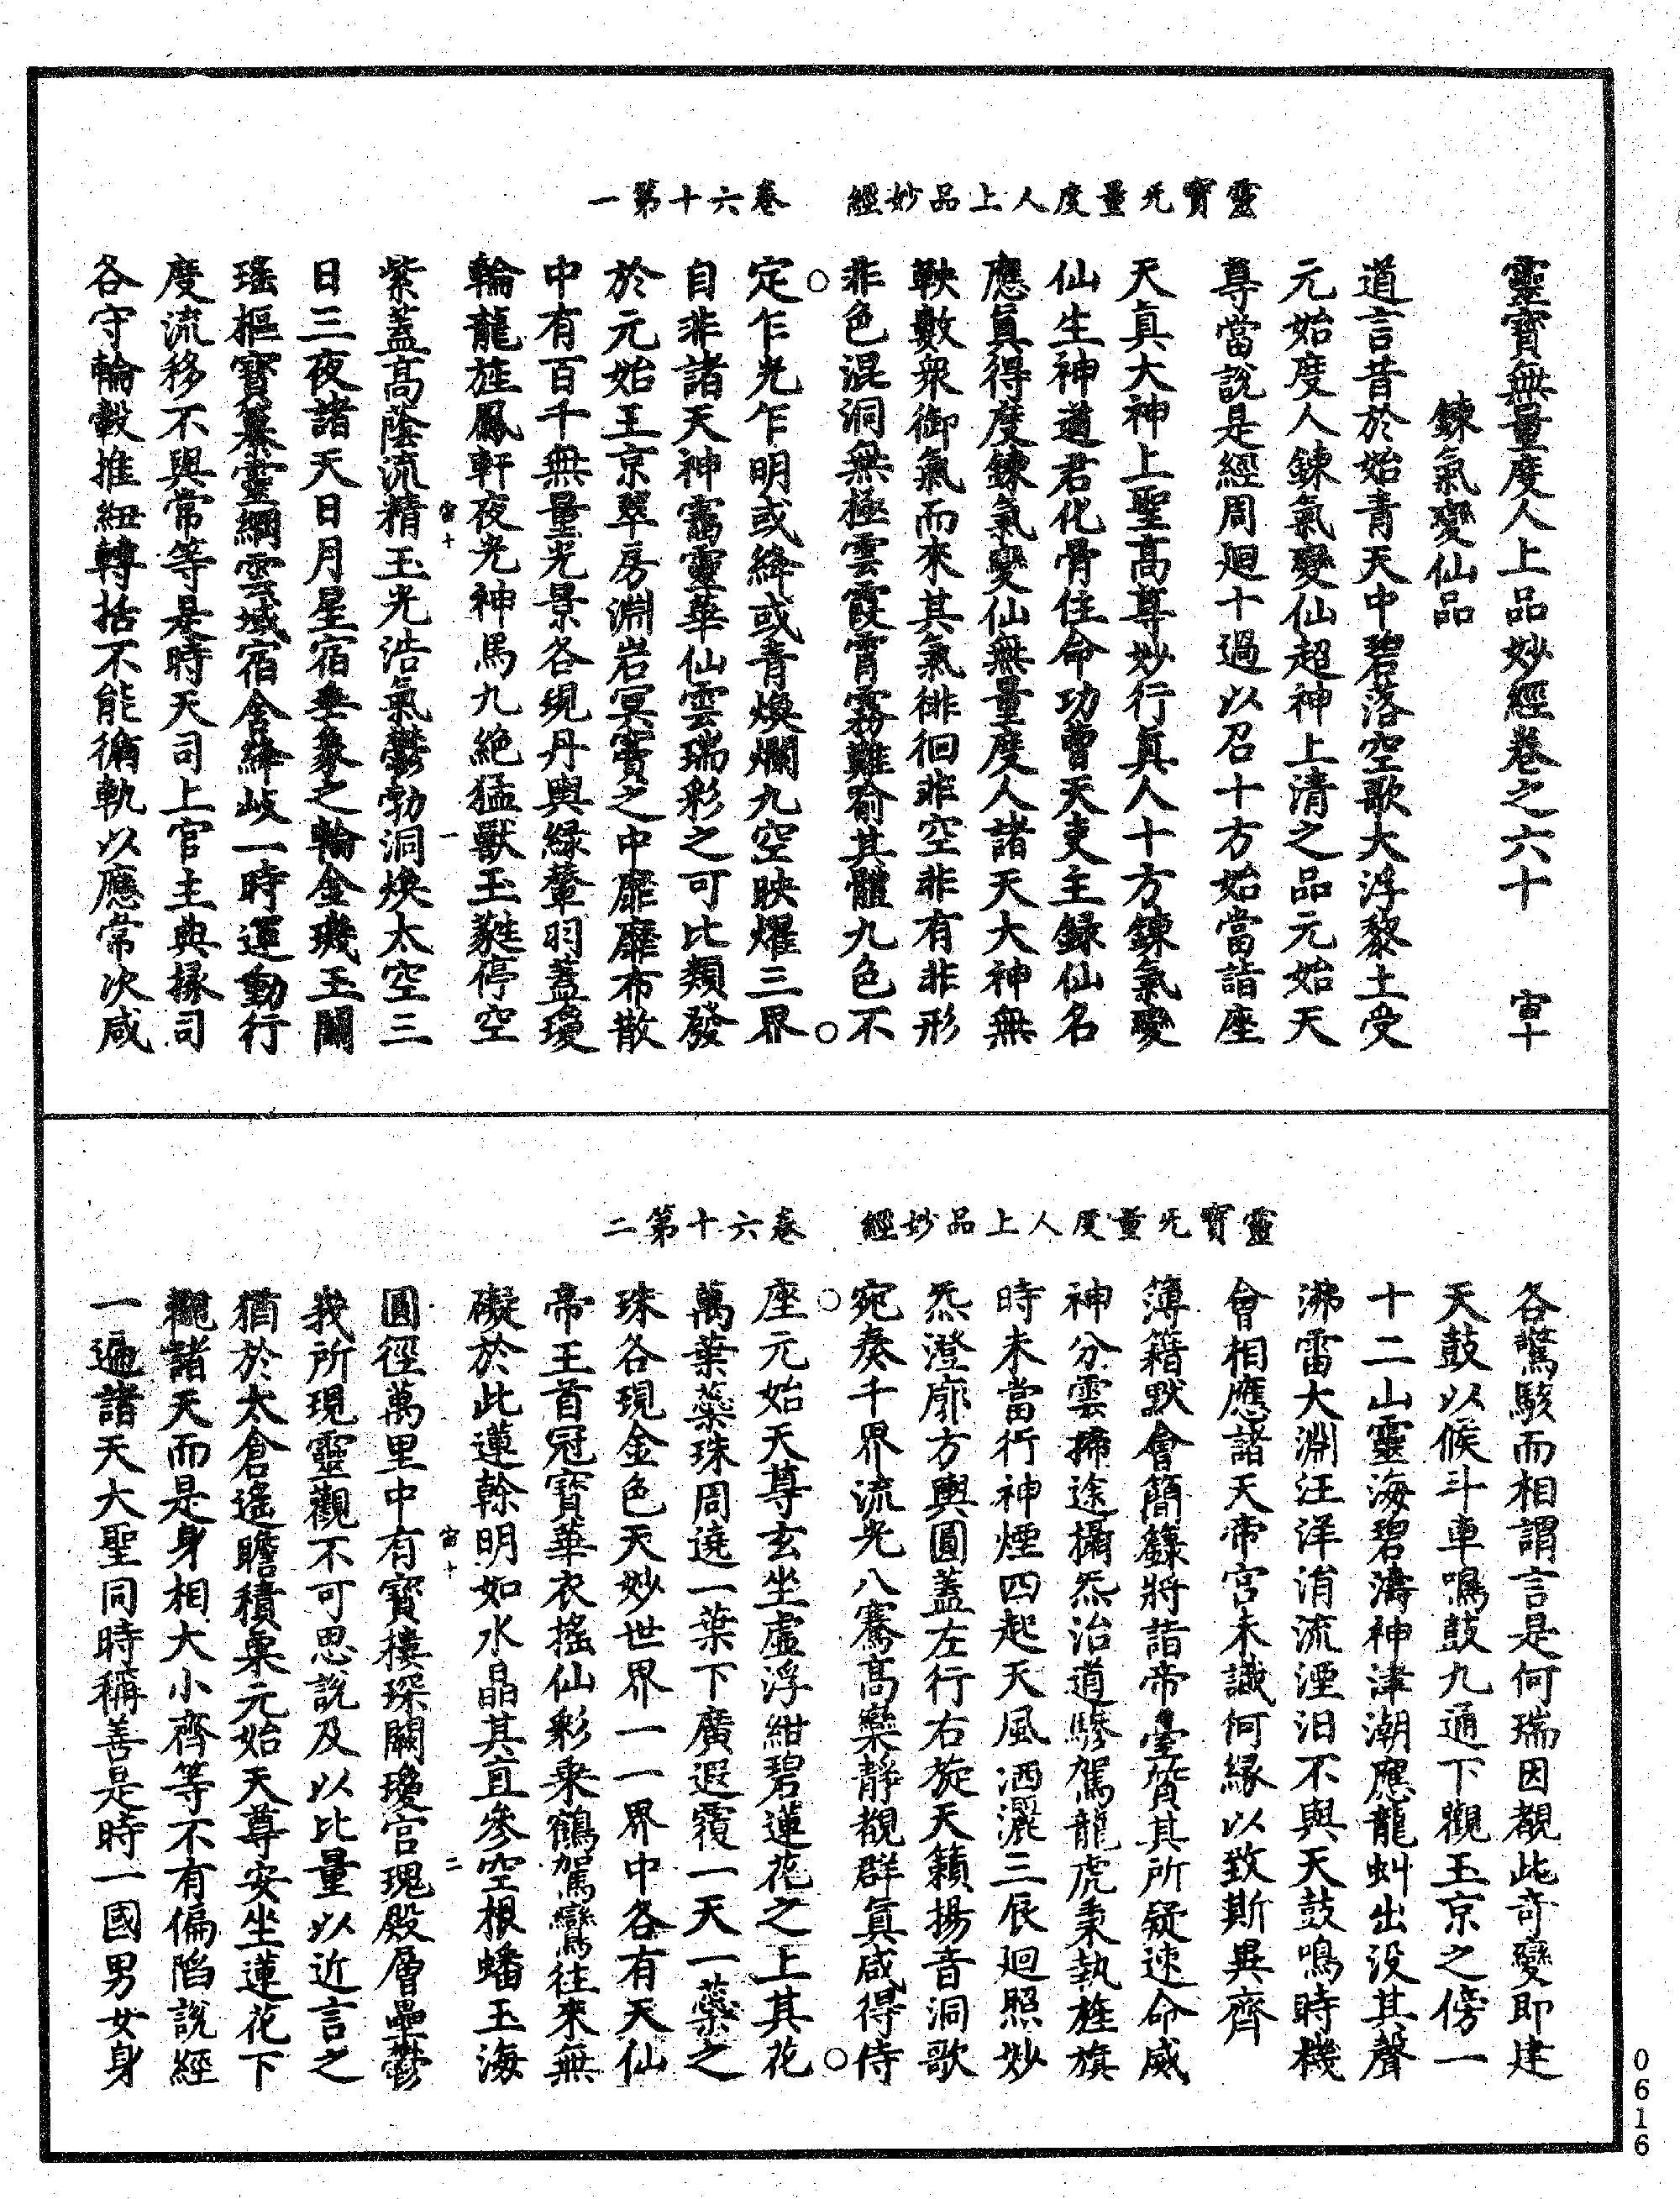 靈寶无量度人上品妙經　卷六十第一
靈寶無量度人上品妙經卷之六十　宙十
鍊氣變仙品
道言昔於始青天中碧落空歌大浮黎土受
元始度人鍊氣變仙超神上清之品元始天
尊當說是經周迴十過以召十方始當詣座
天真大神上聖高尊妙行真人十方鍊氣變
仙生神道君化骨住命功曹天吏主錄仙名
應真得度鍊氣變仙無量度人諸天大神無
鞅數衆御氣而來其氣徘徊非空非有非形
非色混洞無極雲霞霄霧難喻其體九色不
定乍光乍明或絳或青煥爛九空映燿三界
自非諸天神富靈華仙雲瑞彩之可比類發
於元始王京翠房淵岩冥寶之中靡靡布散
中有百千無量光景各現丹輿綠輦羽蓋瓊
輪龍旌鳳軒夜光神馬九絕猛獸玉蕤停空
宙十　一
紫蓋高蔭流精玉光浩氣鬱勃洞煥太空三
日三夜諸天日月星宿垂象之輪金璣玉關
瑤樞寶纂靈綱雲域宿舍絳岐一時運動行
度流移不與常等是時天司上官主典掾司
各守輪轂推紐轉括不能循軌以應常次咸
靈寶无量度人上品妙經　卷六十第二
各驚駭而相謂言是何瑞因覩此奇變即建
天鼓以候斗車鳴鼓九通下觀玉京之傍一
十二山靈海碧濤神津潮應龍虯出没其聲
沸雷大淵汪洋涓流湮汩不與天鼓鳴時機
會相應諸天帝宮未識何緣以致斯異齊
簿籍默會簡籙將詣帝臺質其所疑速命威
神分雲掃途攝炁治道驂駕龍虎秉執旌旗
時未當行神煙四起天風洒灑三辰迴照妙
炁澄廓方輿圓蓋左行右旋天籟揚音洞歌
宛奏千界流光八騫高欒靜覩群真咸得侍
座元始天尊玄坐虛浮紺碧蓮花之上其花
萬葉蘂珠周遶一葉下廣遐覆一天一蘂之
珠各現金色天妙世界一一界中各有天仙
帝王首冠寶華衣搖仙彩乘鶴駕鸞往來無
礙於此蓮幹明如水晶其直參空根蟠玉海
宙十　二
圓徑萬里中有寶樓琛闕瓊宮瑰殿層壘鬱
我所現靈觀不可思說及以比量以近言之
猶於太倉遙瞻積粟元始天尊安坐蓮花下
觀諸天而是身相大小齊等不有偏陷說經
一遍諸天大聖同時稱善是時一國男女身
0616